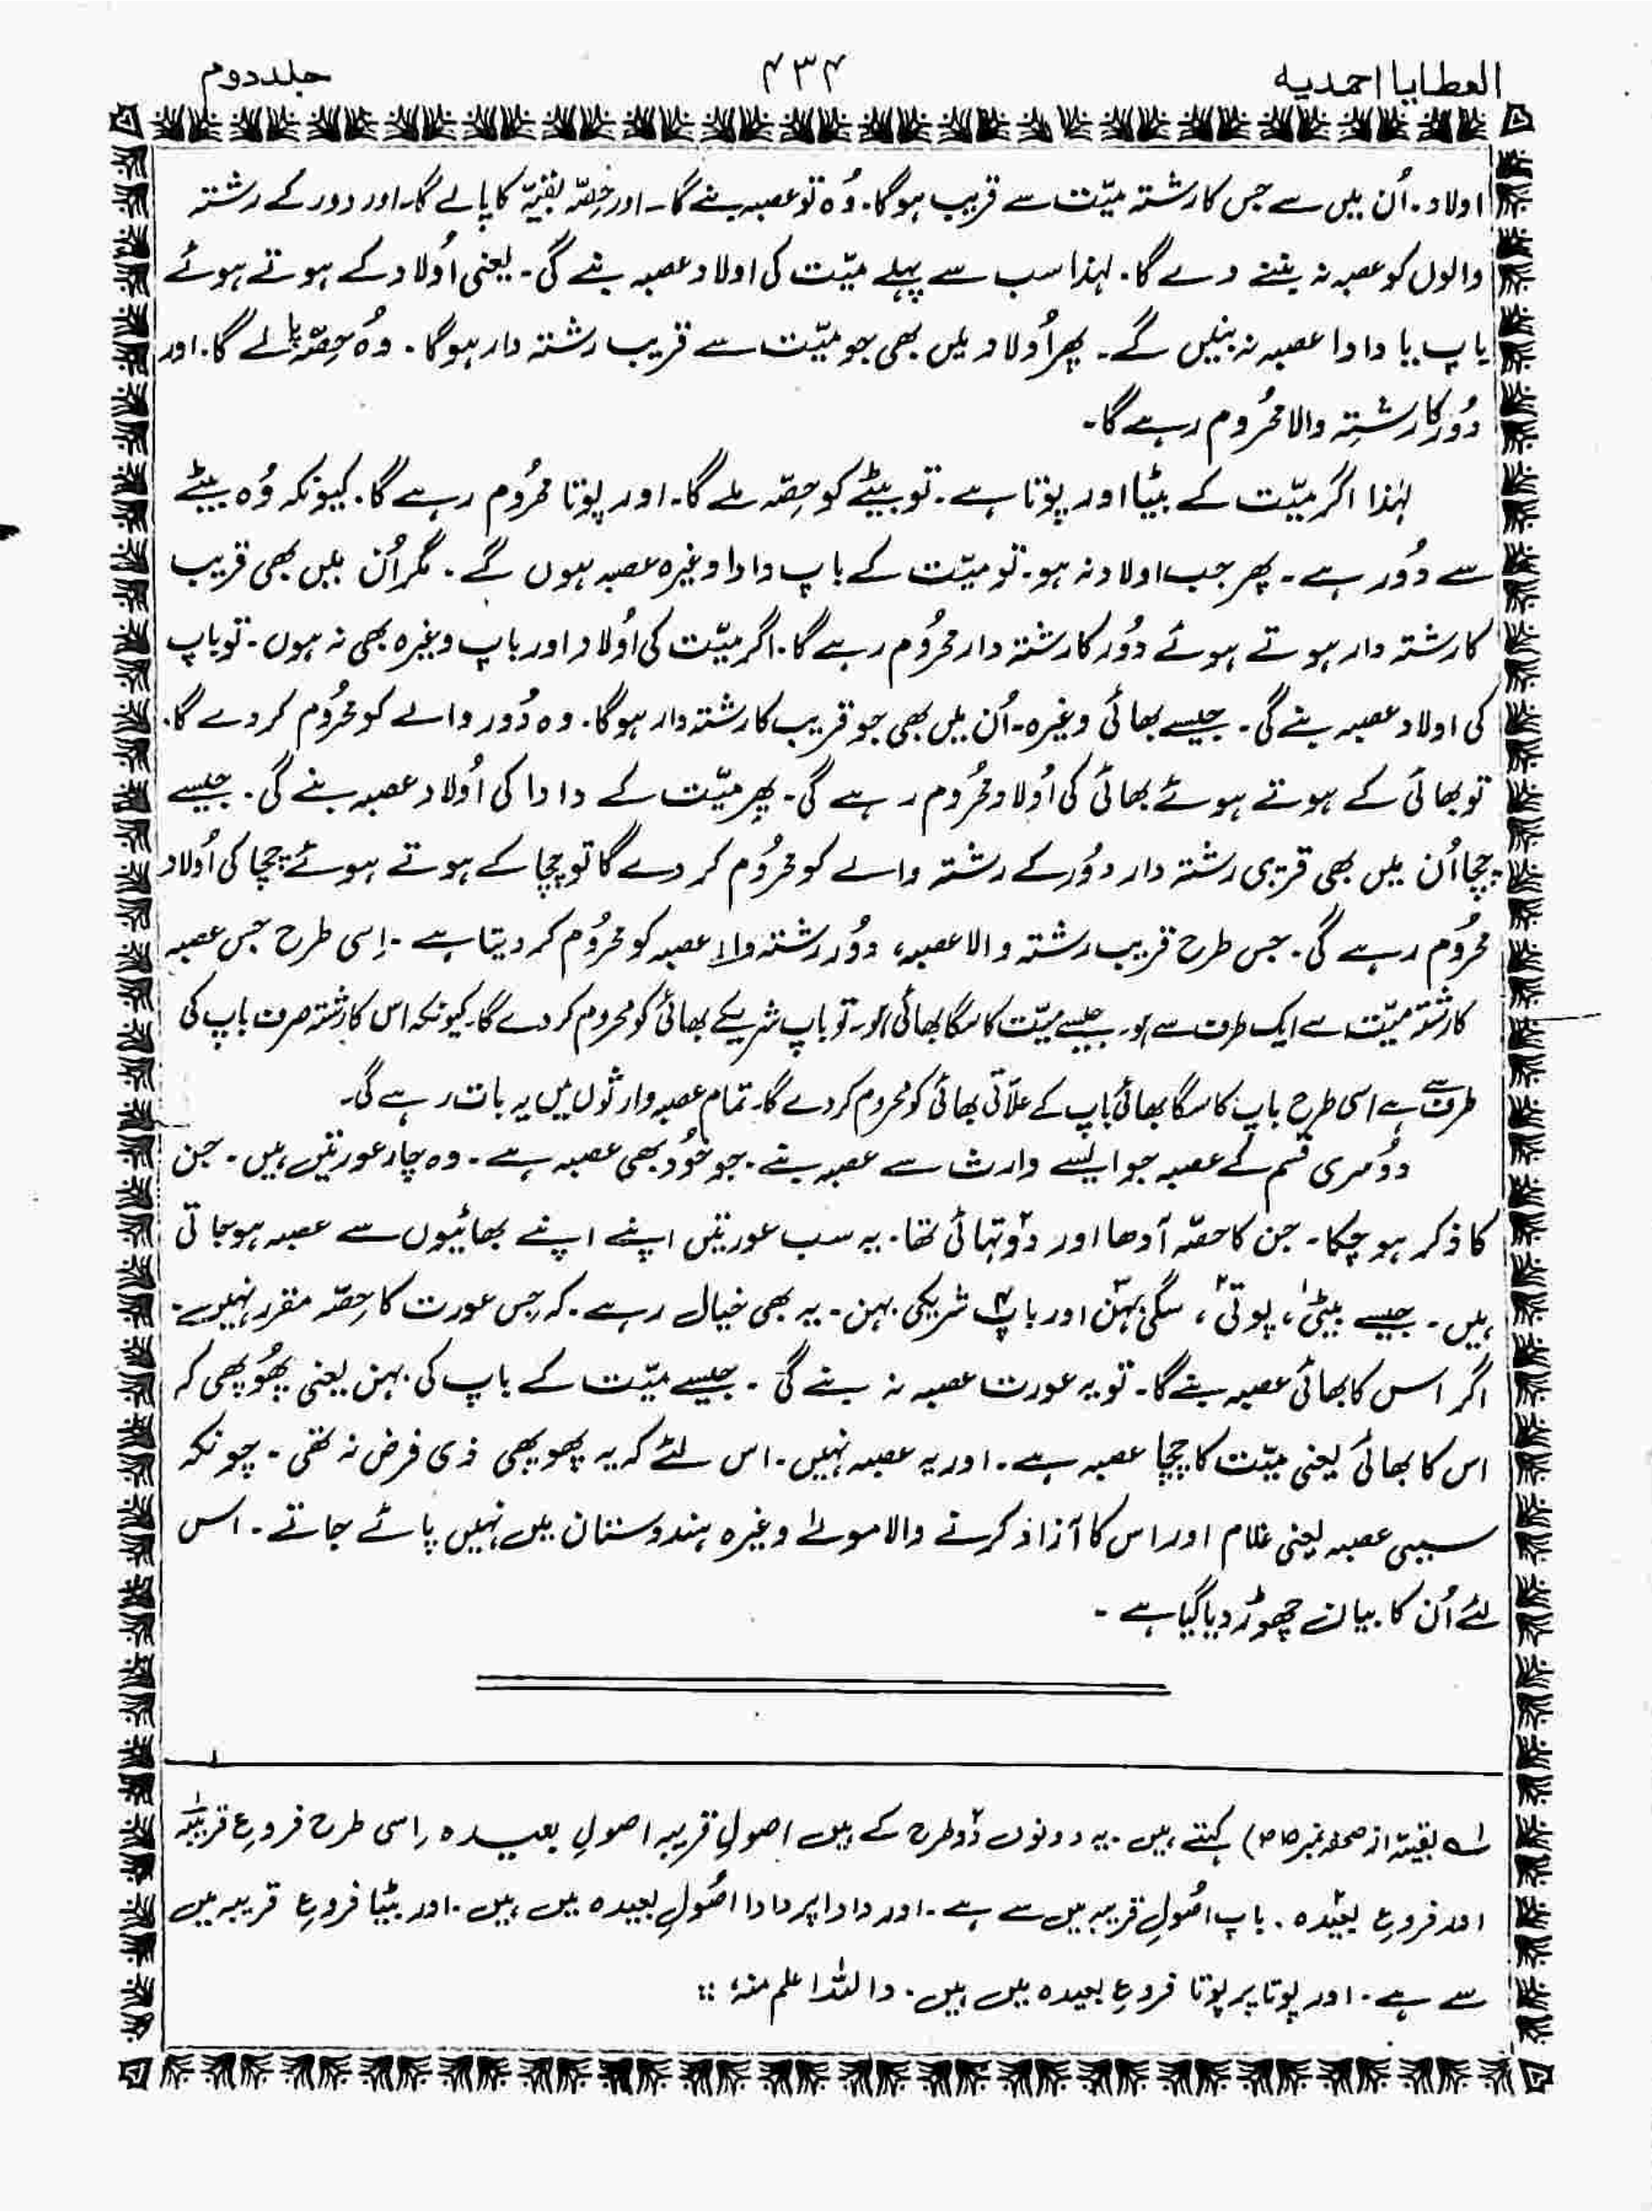 العطایا احمدیہ ۴۳۴ جلد دوم
اولاد۔ اُن میں سے جس کا رشتہ میّت سے قریب ہوگا۔ وُہ تو عصبہ بنے گا۔ اور حِصّہ بقیّہ کا پالے گا۔ اور دور کے رشتہ
والوں کو عصبہ نہ بننے دے گا۔ لہذا سب سے پہلے میّت کی اولاد عصبہ بنے گی۔ یعنی اُولاد کے ہوتے ہوئے
باپ یا دادا عصبہ نہ بنیں گے۔ پھر اُولاد میں بھی جو میّت سے قریب رشتہ دار ہوگا۔ وُہ حِصّہ پالے گا۔ اور
دُور کا رشتہ والا محرُوم رہے گا۔
لہٰذا اگر میّت کے بیٹا اور پوتا ہے۔ تو بیٹے کو حِصّہ ملے گا۔ اور پوتا محرُوم رہے گا۔ کیونکہ وُہ بیٹے
سے دُور ہے۔ پھر جب اولاد نہ ہو۔ تو میّت کے باپ دادا وغیرہ عصبہ ہوں گے۔ مگر اُن میں بھی قریب
کا رشتہ دار ہوتے ہوئے دُور کا رشتہ دار محرُوم رہے گا۔ اگر میّت کی اُولاد اور باپ وغیرہ بھی نہ ہوں۔ تو باپ
کی اولاد عصبہ بنے گی۔ جیسے بھائی وغیرہ۔ اُن میں بھی جو قریب کا رشتہ دار ہوگا۔ وہ دُور والے کو محرُوم کر دے گا۔
تو بھائی کے ہوتے ہوئے بھائی کی اُولاد محرُوم رہے گی۔ پھر میّت کے دادا کی اُولاد عصبہ بنے گی۔ جیسے
چچا اُن میں بھی قریبی رشتہ دار دُور کے رشتہ والے کو محرُوم کر دے گا تو چچا کے ہوتے ہوئے چچا کی اُولاد
محرُوم رہے گی۔ جس طرح قریب رشتہ والا عصبہ، دُور رشتہ والا عصبہ کو محرُوم کر دیتا ہے۔ اِسی طرح جس عصبہ
کا رشتہ میّت سے ایک طرف سے ہو۔ جیسے میّت کا سگا بھائی ہو۔ تو باپ شریکے بھائی کو محروم کر دے گا۔ کیونکہ اس کا رشتہ صرف باپ کی
طرف سے ہے اسی طرح باپ کا سگا بھائی باپ کے علّاتی بھائی کو محروم کر دے گا۔ تمام عصبہ وارثوں میں یہ بات رہے گی۔
دُوسری قسم کے عصبہ جو ایسے وارث سے عصبہ بنے۔ جو خُود بھی عصبہ ہے۔ وہ چار عورتیں ہیں۔ جن
کا ذکر ہو چکا۔ جن کا حصّہ آدھا اور دو۲ تہائی تھا۔ یہ سب عورتیں اپنے اپنے بھائیوں سے عصبہ ہو جاتی
ہیں۔ جیسے بیٹی۱، پوتی۲، سگی بہن۳ اور باپ۴ شریکی بہن۔ یہ بھی خیال رہے۔ کہ جِس عورت کا حِصّہ مقرر نہیں ہے۔
اگر اس کا بھائی عصبہ بنے گا۔ تو یہ عورت عصبہ نہ بنے گی۔ جیسے میّت کے باپ کی بہن یعنی پھُوپھی کہ
اس کا بھائی یعنی میّت کا چچا عصبہ ہے۔ اور یہ عصبہ نہیں۔ اس لئے کہ یہ پھوپھی ذی فرض نہ تھی۔ چونکہ
سببی عصبہ یعنی غلام اور اس کا آزاد کرنے والا مولےٰ وغیرہ ہندوستان میں نہیں پائے جاتے۔ اس
لئے اُن کا بیان چھوڑ دیا گیا ہے۔
۱ے بقیّہ از صحفہ نمبر) کہتے ہیں۔ یہ دونوں دو۲ طرح کے ہیں اصولِ قریبہ اصولِ بعیدہ اِسی طرح فروعِ قریبہ۱
اور فروعِ بعیدہ۲۔ باپ اصُولِ قریبہ میں سے ہے۔ اور دادا پردادا اصُولِ بعیدہ میں ہیں۔ اور بیٹا فروعِ قریبہ میں
سے ہے۔ اور پوتا پرپوتا فروعِ بعیدہ میں ہیں۔ واللہ اعلم منہٗ ::